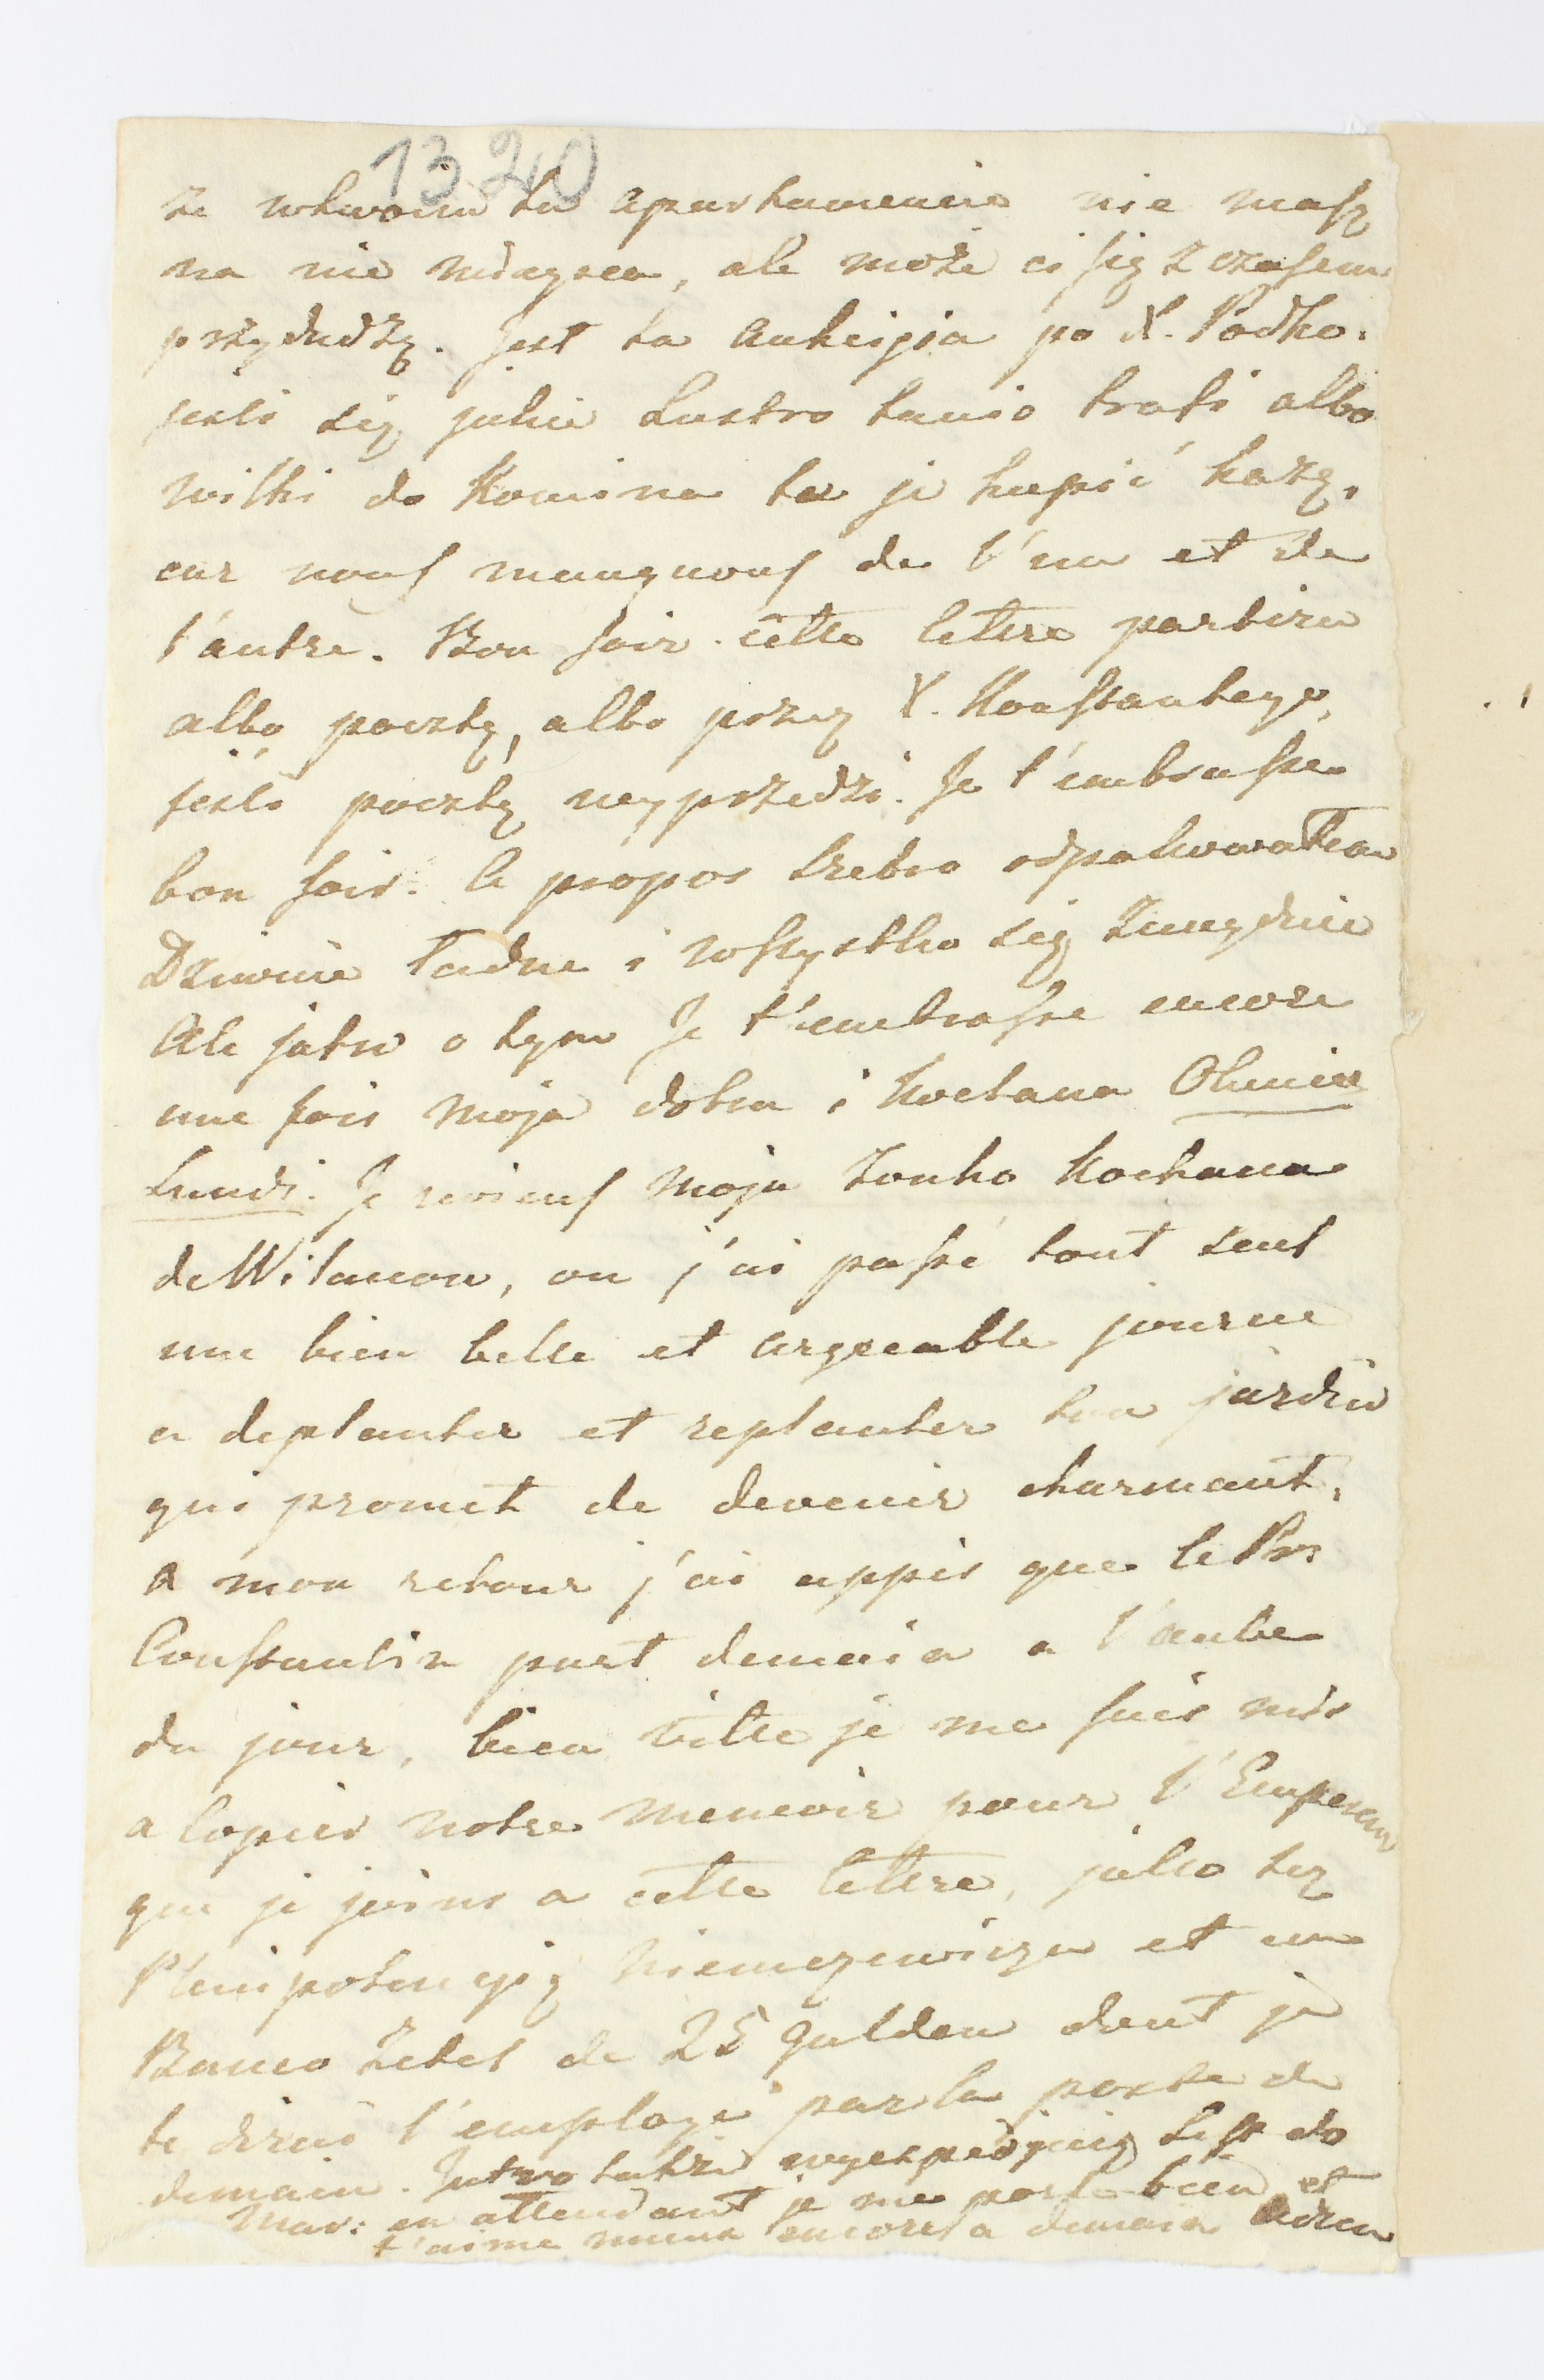 1320
ze w twoim tu apartamencie nie masz
na nie mieysca, ale może ci się z czasem
przydadzą. Jest tu aukcyja po X. Podko.
jesli się jakie Lustro tanio trafi albo
wilki do Komina to je kupić każę,
car nous manquons de l'un et de
l'autre. Bon soir. cette lettre partira
albo pocztą, albo przez X. Konstantego,
jeśli pocztę uyprzedzi. Je t'embrasse
bon soir. A propos srebro odpakowałem
Dziwnie ładne i wszystko się znaydzie
Ale jutro o tym Je t'embrasse encore
une fois moja dobra i kochana
Lundi. Je reviens moja Żonko Kochana
de Wilanow, ou j'ai passé tout seul
une bien belle et argreable journe
a deplanter et replanter ton jardin
qui promet de devenir charmant,
a mon retour j'ai appis que le Prs
Constantin part demain a l'aube
du jour, bien vitte je me suis mis
a Copier notre memoir pour l'Empereur
que je joins a cette lettre, jako tez
Plenipotencyią Niemczewicza et un
Banco Zetel de 25 gulden dont je
te dirai l'employe par la poste de
demain. Jutro także wyexpedjuię List do
Mar: en attendant je me porte bien et
t'aime mieux encore a demain Adieu